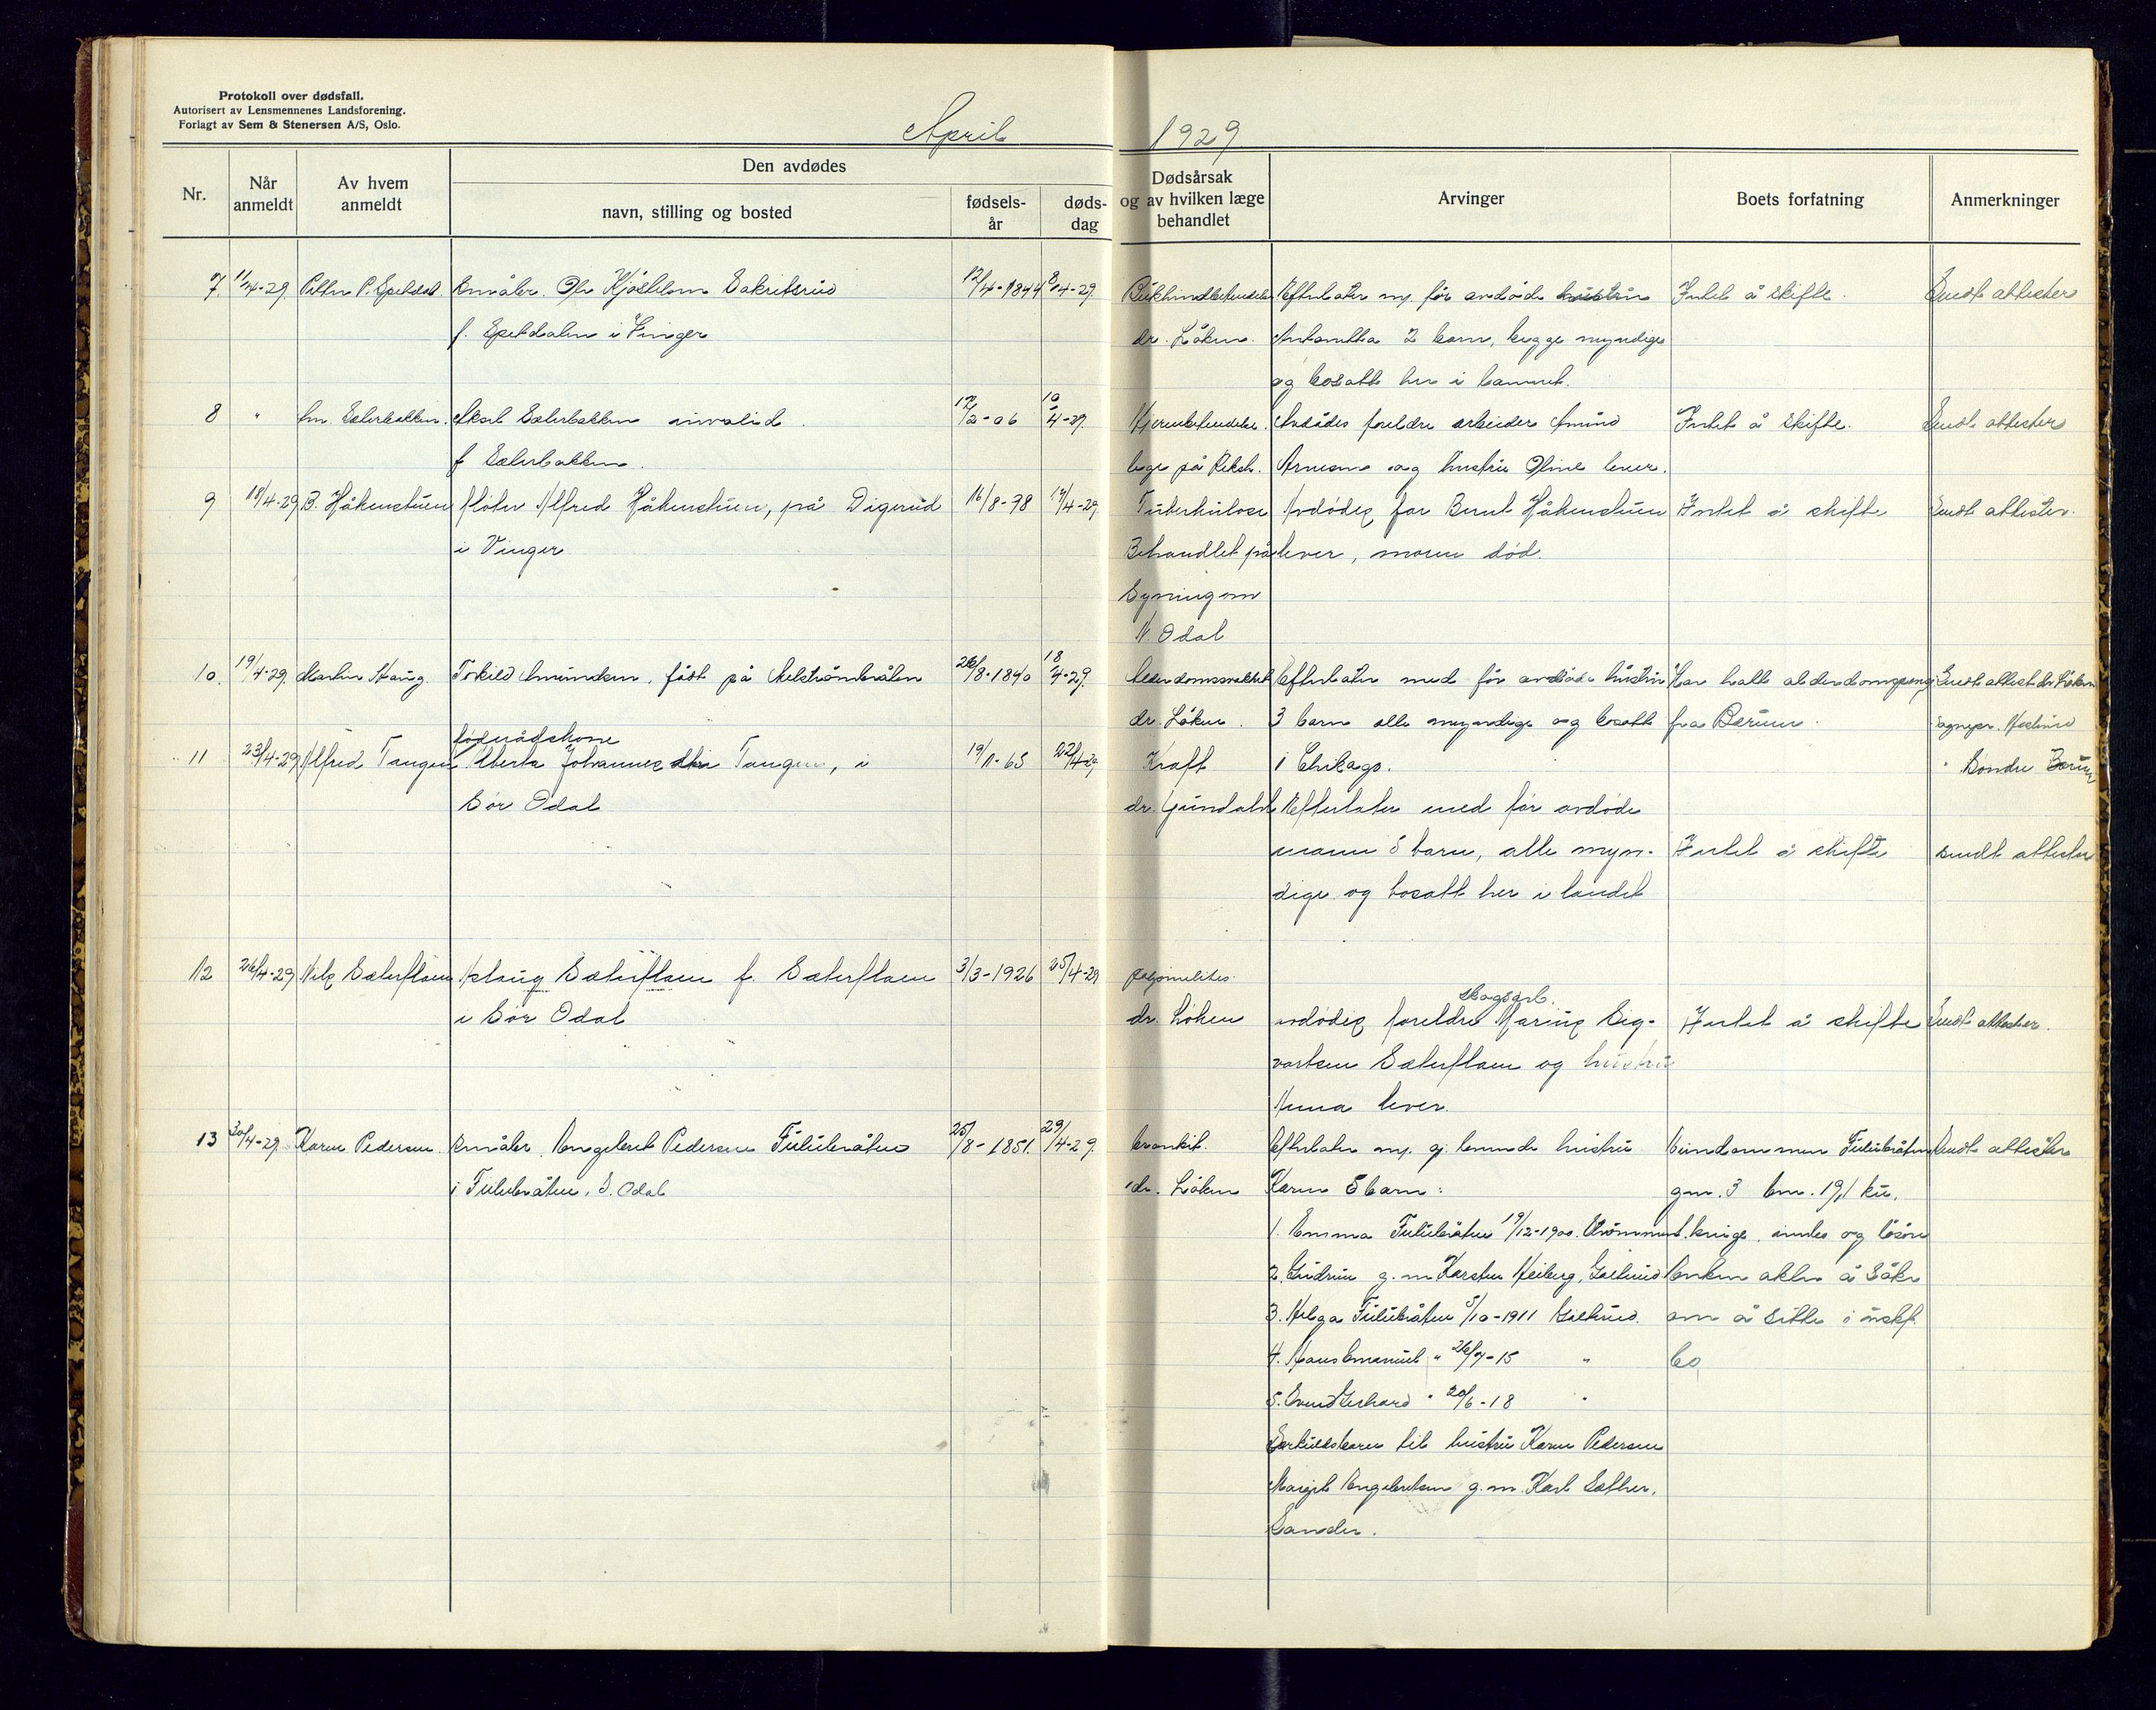 Protokoll over dødsfall.
Autorisert av Lensmennenes Landsforening.
Forlagt av Sem & Stenersen A/S, Oslo.
April 1929
Nr.
Når anmeldt
Av hvem anmeldt
Den avdødes
navn, stilling og bosted
fødsels-år
døds-dag
Dødsårsak og av hvilken læge behandlet
Arvinger
Boets forfatning
Anmerkninger
7. 11/4-29 Petter P. småbr. Ole 12/4-1844 8/4-29. Bukhindebetendelse Efterlater my. før avdøde hustru Intet å skifte. Sendt attester
f. i Vinger dr. Løken. 2 barn, begge myndige
og bosatt her i landet.
8 " fru Sæterbakken. Aksel Sæterbakken invalid. 17/2-06 10/4-29. Avdødes foreldre arbeider Amund Intet å skifte. Sendt attester
f Sæterbakken. lege på Riksh. Arnesen og hustru Oline lever.
9 18/4-29 B. Håkenstuen fløter Alfred Håkenstuen, på Digerud 16/8-98 17/4-29 Tuberkulose Avdødes far Bernt Håkenstuen Intet å skifte Sendt attester.
i Vinger Behandlet på lever, moren død.
N. Odal
10. 19/4-29. Martin Haug Torkild Amundsen, født på 26/8-1840 18/4-29. Alderdomssvakhet Efterlater med før avdøde hustru Har hatt alderdomspeng. Sendt attest dr. Løken
dr. Løken. 3 barn alle myndige og bosatt fra Bærum.
føderådskone
11 23/4-29 Alfred Tangen Alberta Johannesdtr Tangen, i 19/11-65 22/4-29 Kræft i Chikago.
Sør Odal dr. Efterlater med før avdøde
mann 5 barn, alle myn- Intet å skifte sendt attester
dige og bosatt her i landet
12 26/4-29 Nils Sæterflaen Aslaug Sæterflaen f. Sæterflaen 3/3-1926 25/4-29
i Sør Odal dr. Løken avdødes foreldre skogsarb. Marius Sig- Intet å skifte Sendt attester.
vartsen Sæterflaen og hustru
Anna lever.
13 30/4-29. Karen Pedersen småbr. Engebret Pedersen Fulubråten 25/8-1851. 29/4-29. bronkit. Efterlater my. gj.levende hustru Eiendommen Fulubråten Sendt attester
i Fulubråten, S. Odal dr. Løken Karen 5 barn: gnr. 3 bnr. 19, 1 ku,
1. Emma Fulubråten 19/12-1900. Strømmen innbo og løsøre
2. Gudrun g. m Karsten Heiberg, Galterud Enken akter å søke
3. Helga Fulubråten 5/10-1911 Galterud. om å sitte i uskf.
4. Hans Emanuel " 26/7-15 " bo
5. Gerhard " 20/6-18 "
Særkullsbarn til hustru Karen Pedersen
Margit Engebretsen g.m. Karl Sæther,
Sander.